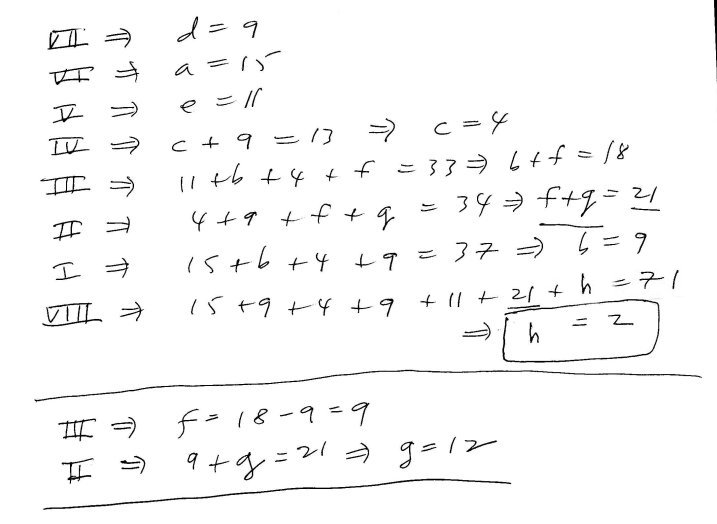 VII ⇒ d = 9
VI ⇒ a = 15
V ⇒ e = 11
IV ⇒ c + 9 = 13 ⇒ c = 4
III ⇒ 11 + b + 4 + f = 33 ⇒ b + f = 18
II ⇒ 4 + 9 + f + g = 34 ⇒ f + g = 21
I ⇒ 15 + b + 4 + 9 = 37 ⇒ b = 9
VIII ⇒ 15 + 9 + 4 + 9 + 11 + 21 + h = 71
⇒ h = 2
III ⇒ f = 18 - 9 = 9
II ⇒ 9 + g = 21 ⇒ g = 12